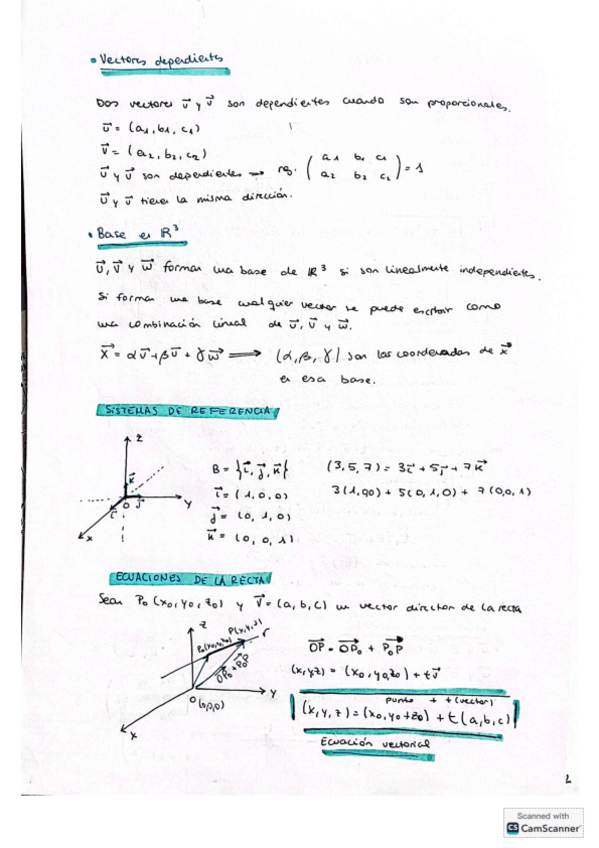 • Vectores dependientes
Dos vectores u⃗ y v⃗ son dependientes cuando son proporcionales.
u⃗ = (a1, b1, c1)
v⃗ = (a2, b2, c2)
u⃗ y v⃗ son dependientes → rg. ( a1 b1 c1 / a2 b2 c2 ) = 1
u⃗ y v⃗ tienen la misma dirección.
• Base en ℝ³
u⃗, v⃗ y w⃗ forman una base de ℝ³ si son linealmente independientes.
Si forman una base cualquier vector se puede escribir como
una combinación lineal de u⃗, v⃗ y w⃗.
x⃗ = αu⃗ + βv⃗ + γw⃗ ⟹ (α, β, γ) son las coordenadas de x⃗
en esa base.
SISTEMAS DE REFERENCIA
z
k⃗
O j⃗ y
i⃗
x
B = {i⃗, j⃗, k⃗}
i⃗ = (1, 0, 0)
j⃗ = (0, 1, 0)
k⃗ = (0, 0, 1)
(3, 5, 7) = 3i⃗ + 5j⃗ + 7k⃗
3(1,0,0) + 5(0,1,0) + 7(0,0,1)
ECUACIONES DE LA RECTA
Sean P0 (x0, y0, z0) y v⃗ = (a, b, c) un vector director de la recta
z
P(x,y,z)
r
P0(x0,y0,z0)
OP0 + P0P
y
O (0,0,0)
x
OP = OP0 + P0P
(x,y,z) = (x0, y0, z0) + tv⃗
punto + t (vector)
(x, y, z) = (x0, y0+z0) + t(a, b, c)
Ecuación vectorial
2
Scanned with
CS CamScanner